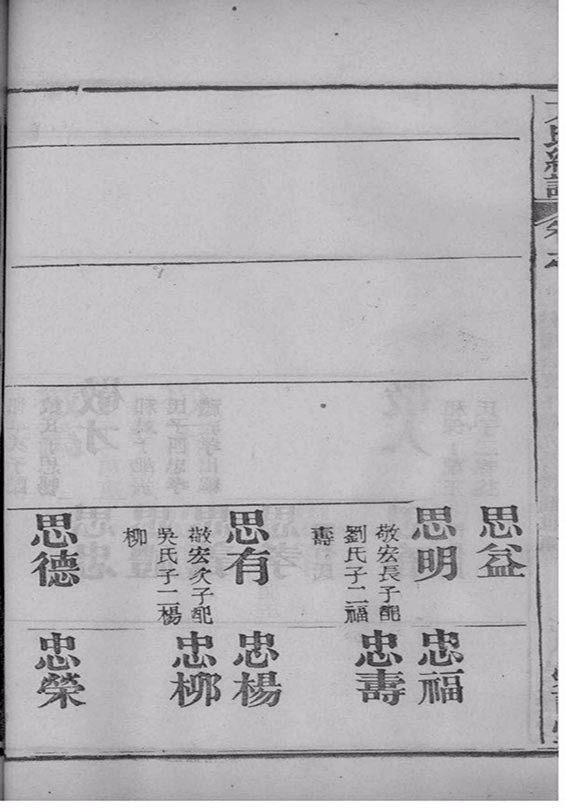 思益
思明
敬宏長子配
劉氏子二福
壽
思有
敬宏次子配
吳氏子二楊
柳
思德
忠福
忠壽
忠楊
忠柳
忠榮